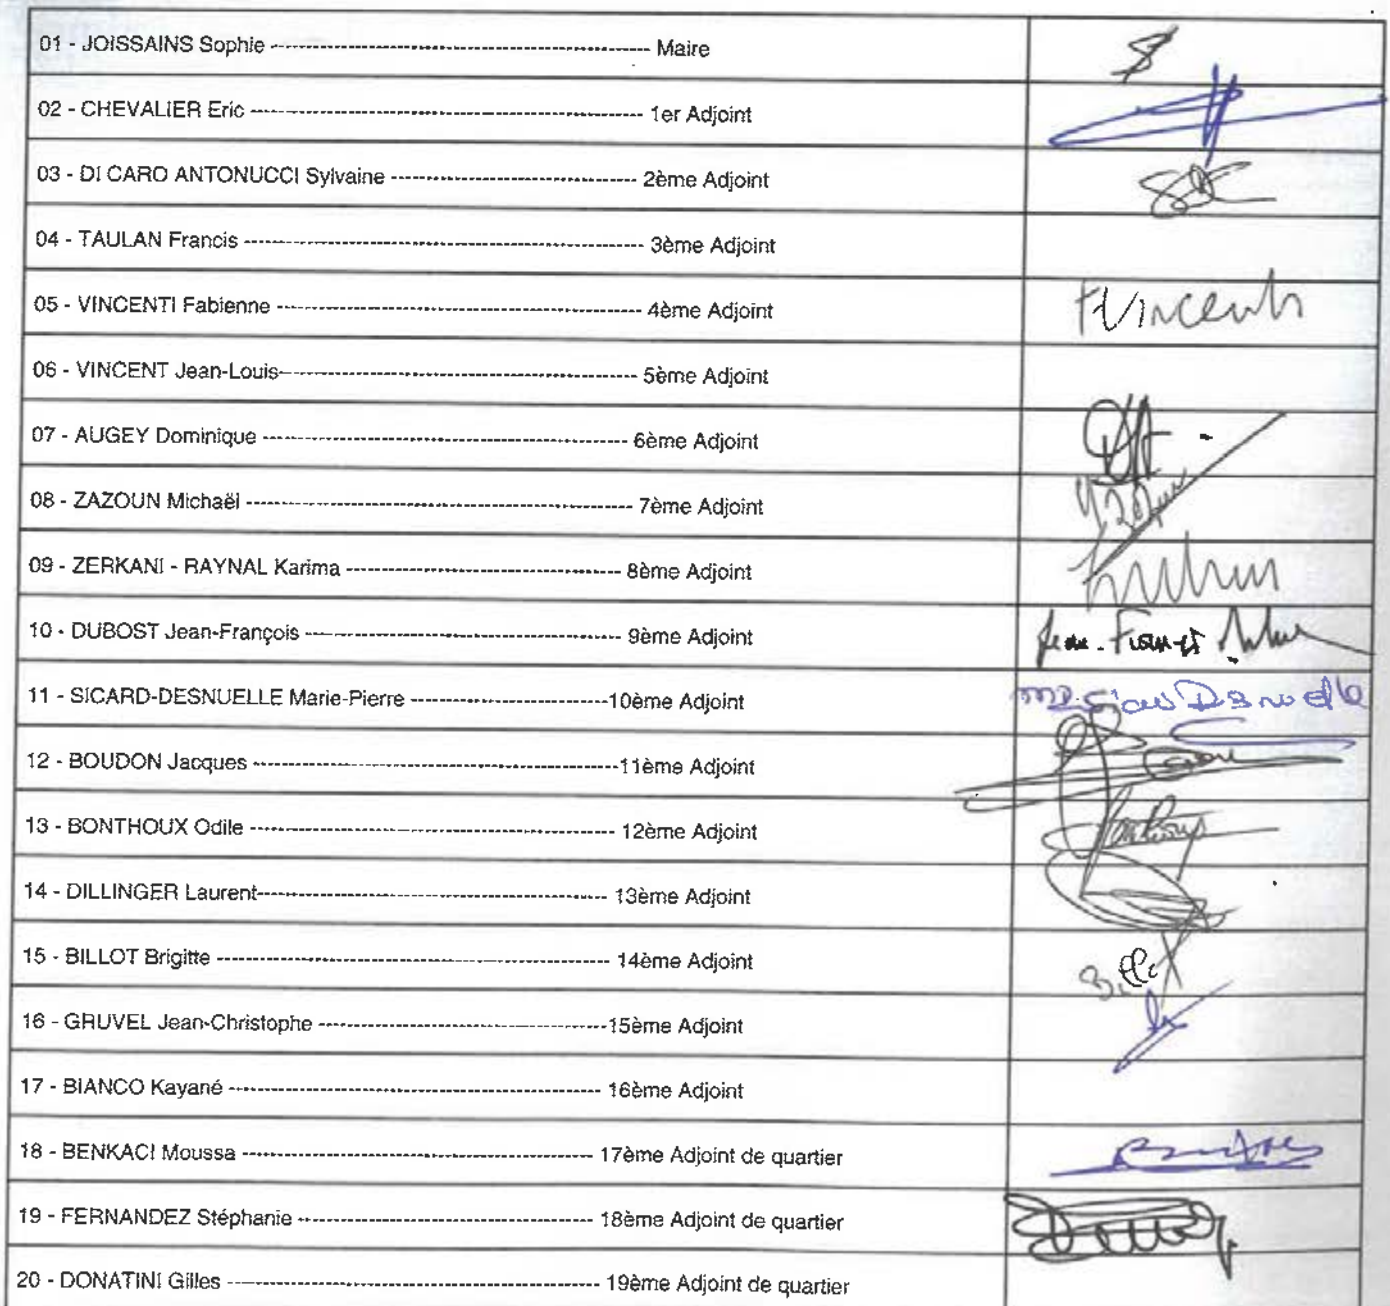 01 - JOISSAINS Sophie ---------- Maire
02 - CHEVALIER Eric ---------- 1er Adjoint
03 - DI CARO ANTONUCCI Sylvaine ---------- 2ème Adjoint
04 - TAULAN Francis ---------- 3ème Adjoint
05 - VINCENTI Fabienne ---------- 4ème Adjoint FVincenti
06 - VINCENT Jean-Louis ---------- 5ème Adjoint
07 - AUGEY Dominique ---------- 6ème Adjoint
08 - ZAZOUN Michaël ---------- 7ème Adjoint
09 - ZERKANI - RAYNAL Karima ---------- 8ème Adjoint
10 - DUBOST Jean-François ---------- 9ème Adjoint
11 - SICARD-DESNUELLE Marie-Pierre ----------10ème Adjoint
12 - BOUDON Jacques ----------11ème Adjoint
13 - BONTHOUX Odile ---------- 12ème Adjoint
14 - DILLINGER Laurent---------- 13ème Adjoint
15 - BILLOT Brigitte ---------- 14ème Adjoint
16 - GRUVEL Jean-Christophe ----------15ème Adjoint
17 - BIANCO Kayané ---------- 16ème Adjoint
18 - BENKACI Moussa ---------- 17ème Adjoint de quartier
19 - FERNANDEZ Stéphanie ---------- 18ème Adjoint de quartier
20 - DONATINI Gilles ---------- 19ème Adjoint de quartier